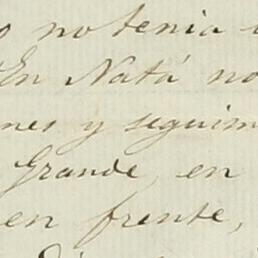 no tenia
En Natá no
nes y seguim
Grande, en
en frente,